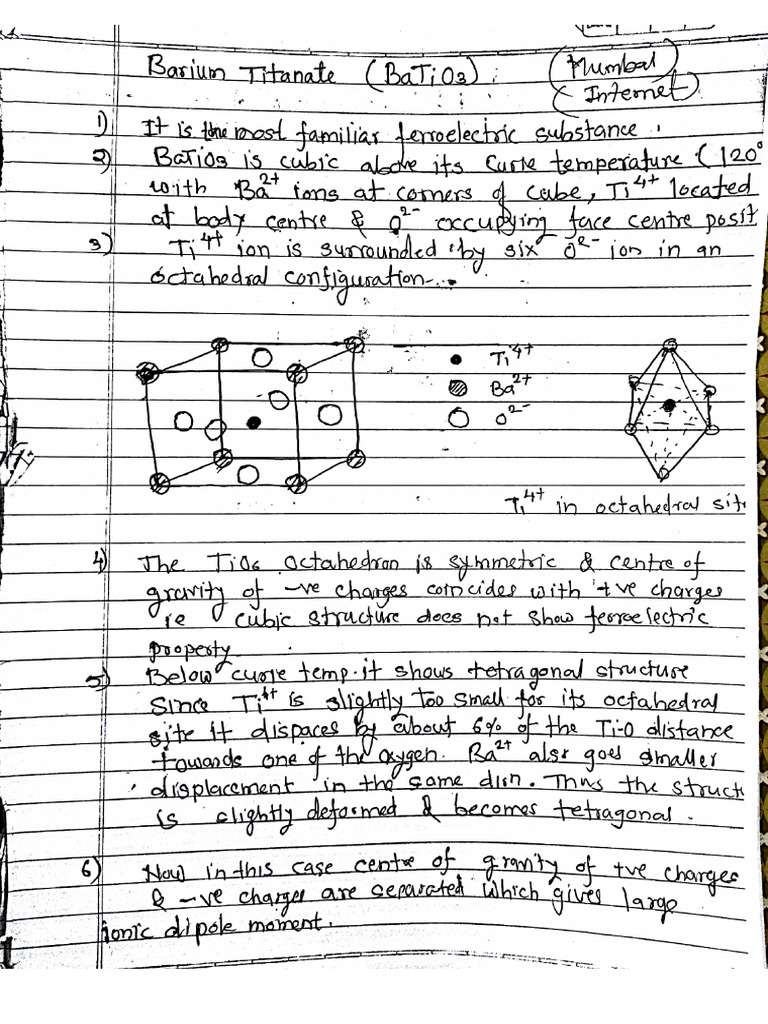 Barium Titanate (BaTiO3) :
(Mumbai)
(Internet)
1) It is the most familiar ferroelectric substance.
2) BaTiO3 is cubic above its Curie temperature (120°
with Ba2+ ions at corners of cube, Ti4+ located
at body centre & O2- occupying face centre posit
3) Ti4+ ion is surrounded by six O2- ion in an
octahedral configuration.
Ti4+
Ba2+
O2-
Ti4+ in octahedral sit
4) The TiO6 octahedron is symmetric & centre of
gravity of -ve charges coincides with +ve charges
ie cubic structure does not show ferroelectric
property
5) Below curie temp. it shows tetragonal structure
Since Ti4+ is slightly too small for its octahedral
site it dispaces by about 6% of the Ti-O distance
towards one of the oxygen. Ba2+ also goes smaller
displacement in the same dirn. Thus the struct
is slightly deformed & becomes tetragonal.
6) Now in this case centre of gravity of +ve charges
& -ve charges are separated which gives large
ionic dipole moment.